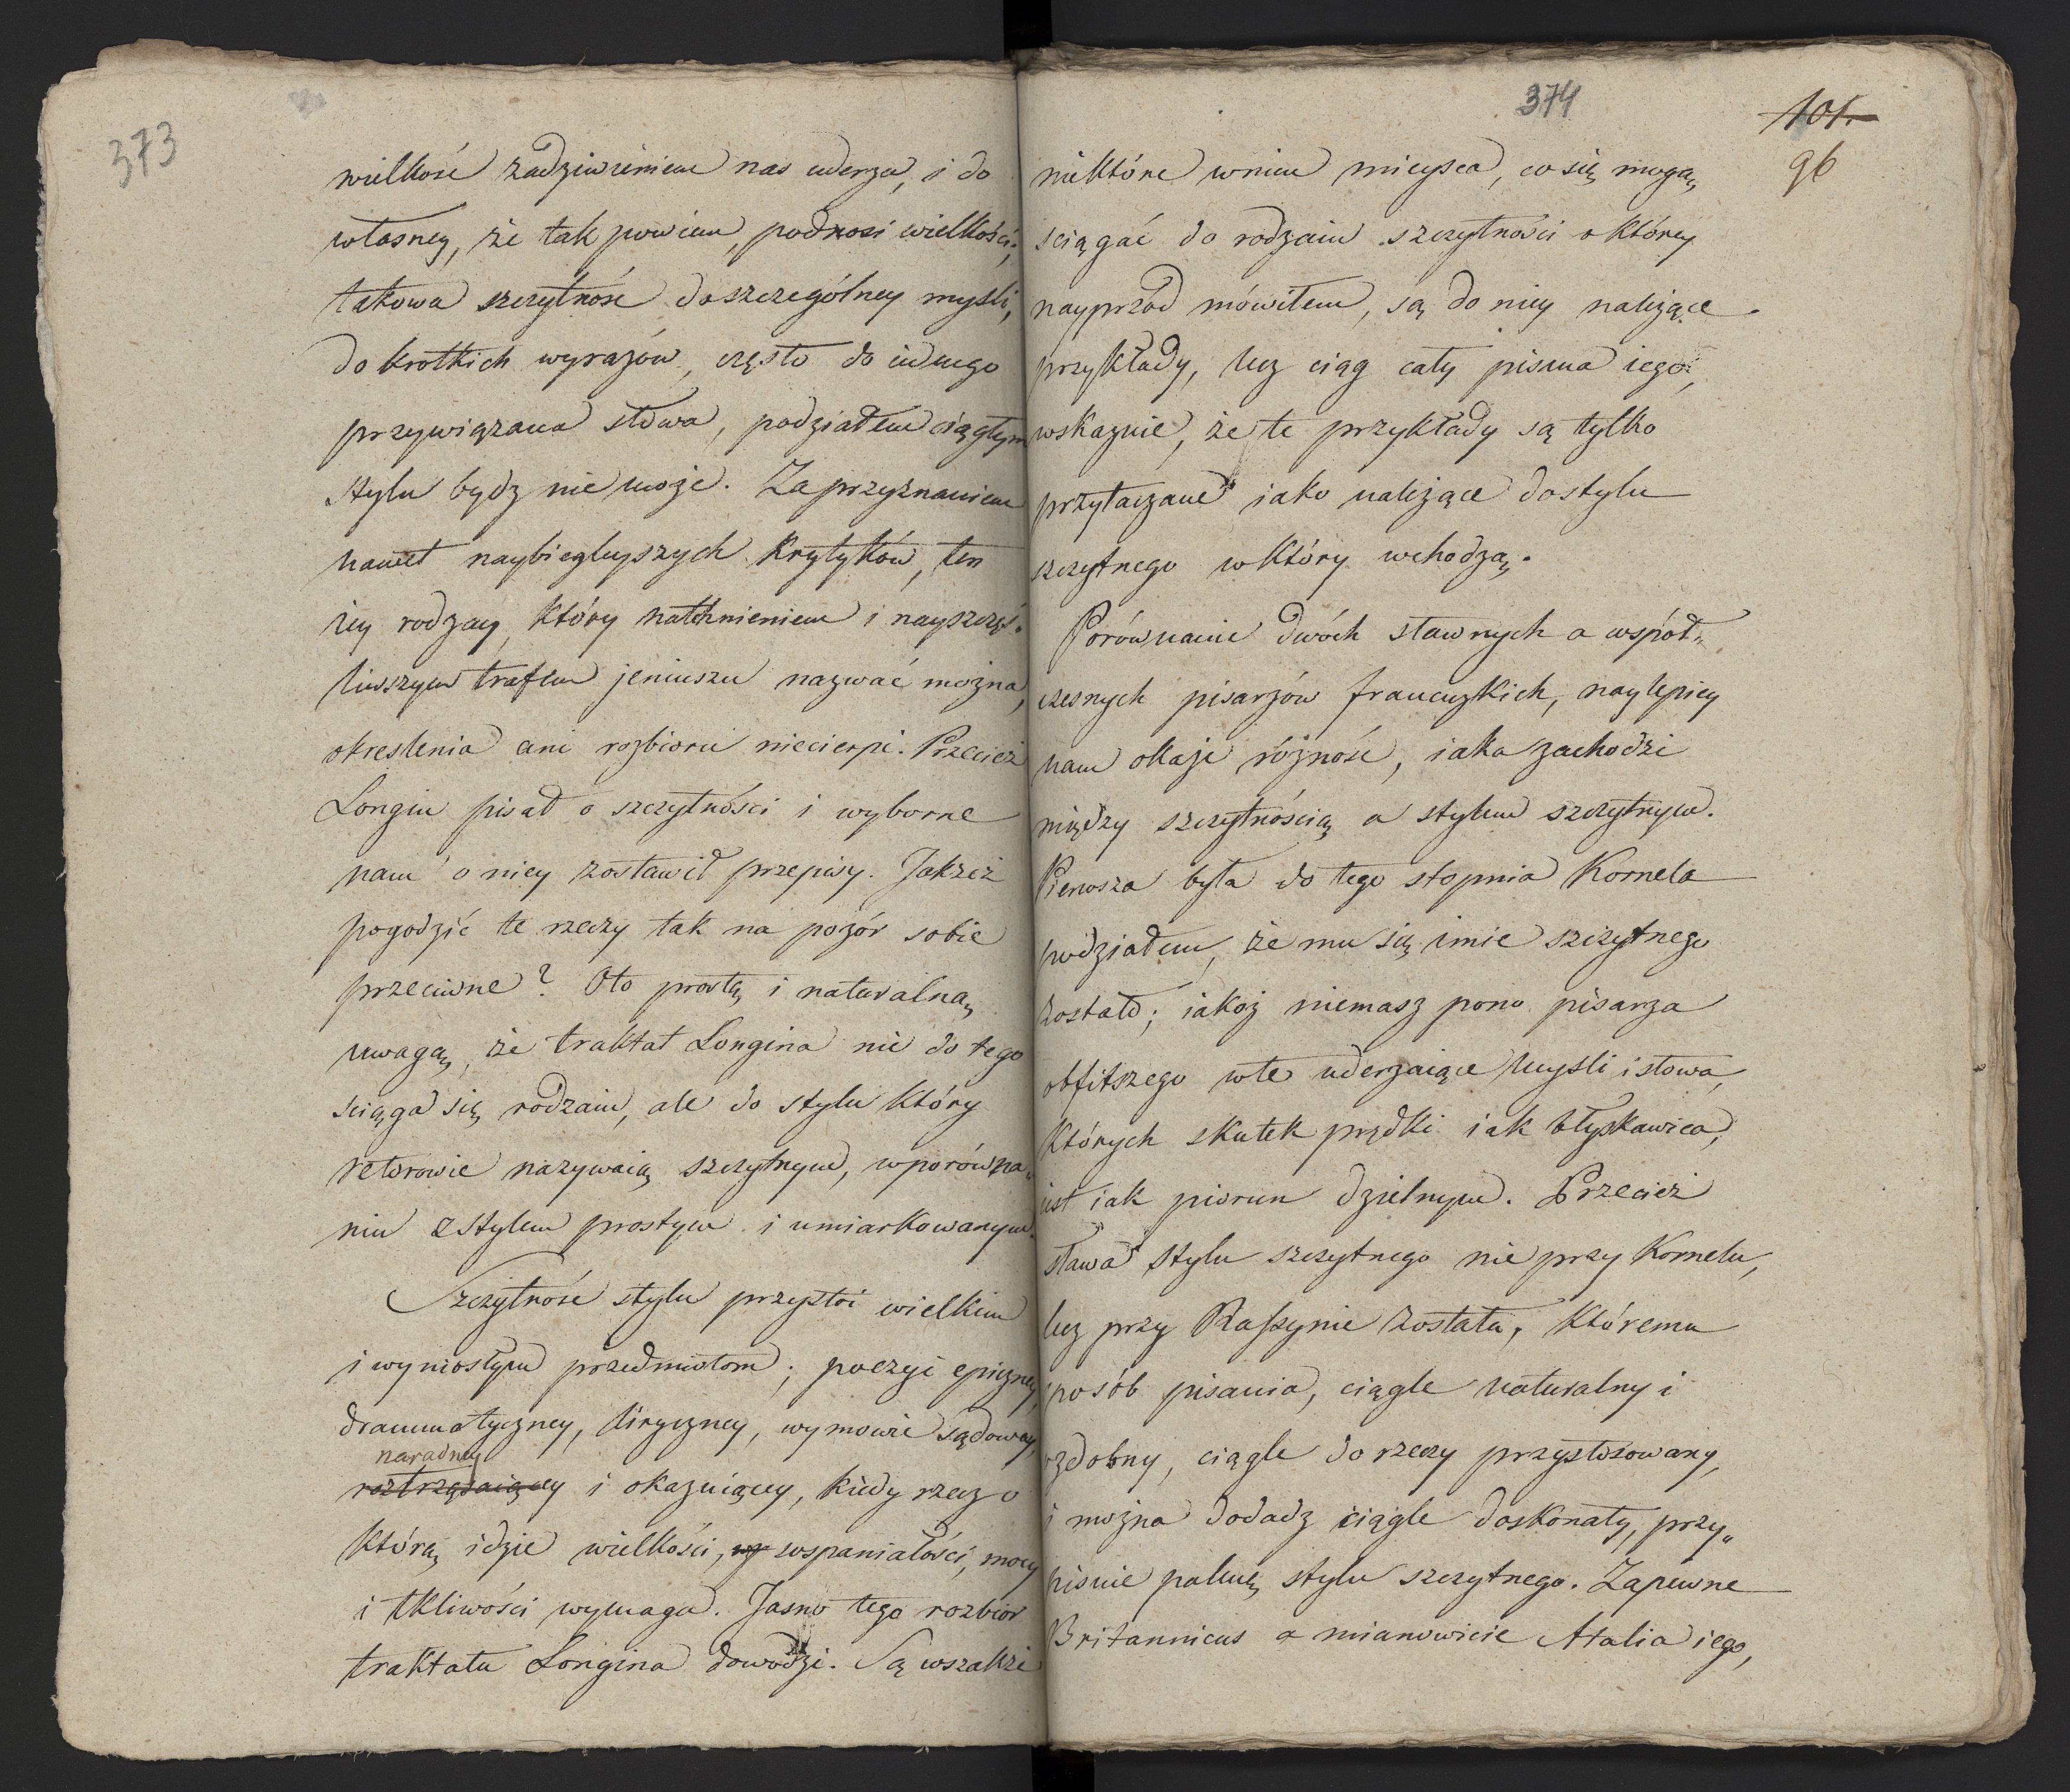 373
wielkość zadziwieniem nas uderza, i do
własney, że tak powiem, podnosi wielkości;
takowa szczytność do szczególney myśli,
do krotkich wyrazów, często do iednego
przywiązana słowa, podziałem ciągłym
stylu bydz nie może. Za przyznaniem
nawet naybiegleyszych Krytyków, ten
iey rodzay, który natchnieniem i nayszczęś„
liwszym trafem jeniuszu nazwać można,
okreslenia ani rozbioru niecierpi. Przecież
Longin pisał o szczytności i wyborne
nam o niey zostawił przepisy. Jakżeż
pogodzić te rzeczy tak na pozór sobie
przeciwne? Oto prostą i naturalną
uwagą, że traktat Longina nie do tego
ściąga się rodzaiu, ale do stylu który
retorowie nazywaią szczytnym, w porówna„
niu z stylem prostym i umiarkowanym.
Szczytność stylu przystoi wielkim
i wyniosłym przedmiotom; poezyi epiczney,
drammatyczney, liryczney, wymowie sądowey,
naradney
roztrząsaiącey i okazuiącey, kiedy rzecz o
którą idzie wielkości, wy wspaniałości, mocy
i tkliwości wymaga. Jasno tego rozbior
traktatu Longina dowodzi. Są wszakże
374
101.
96
niektóre w nim mieysca, co się mogą
sciągać do rodzaiu szczytności o którey
nayprzód mówiłem, są do niey należące
przykłady, lecz ciąg cały pisma iego,
wskazuie, że te przykłady są tylko
przytaczane iako należące do stylu
szczytnego w który wchodzą.
Porównanie dwóch sławnych a wspoł„
czesnych pisarzów francuzkich, naylepiey
nam okaże różność, iaka zachodzi
między szczytnością a stylem szczytnym.
Pierwsza była do tego stopnia Kornela
podziałem, że mu się imie szczytnego
zostało; iakoż niemasz pono pisarza
obfitszego w te uderzaiące myśli i słowa,
których skutek prędki iak błyskawica,
iest iak piorun dzielnym. Przecież
sława stylu szczytnego nie przy Kornelu,
lecz przy Rassynie została, któremu
sposób pisania, ciągle naturalny i
ozdobny, ciągle do rzeczy przystosowany,
i można dodadz ciągle doskonały, przy„
pisuie palmę stylu szczytnego. Zapewne
Britannicus a mianowicie Atalia iego,